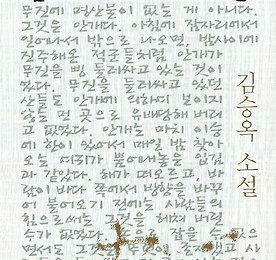 무진에 명산물이 없는 게 아니다.
그것은 안개다. 아침에 잠자리에서
일어나서 밖으로 나오면, 밤사이에
진주해온 적군들처럼 안개가
무진을 삥 둘러싸고 있는 것이
었다. 무진을 둘러싸고 있던
산들도 안개에 의하여 보이지
않는 먼 곳으로 유배당해 버리
고 없었다. 안개는 마치 이승
에 한이 있어서 매일 밤 찾아
오는 여귀가 뿜어내놓은 입김
과 같았다. 해가 떠오르고, 바
람이 바다 쪽에서 방향을 바꾸
어 불어오기 전에는 사람들의
힘으로써는 그것을 헤쳐 버릴
수가 없었다. 손으로 잡을 수 없으
면서도 그것은
김승옥 소설